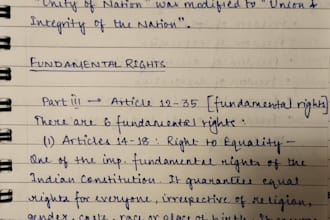 "Unity of Nation" was modified to "Union &
Integrity of the Nation".
FUNDAMENTAL RIGHTS
Part iii → Article 12-35 [fundamental rights]
There are 6 fundamental rights :
(1) Articles 14-18 : Right to Equality -
One of the imp. fundamental rights of the
Indian Constitution. It guaranties equal
rights for everyone, irrespective of religion,
gender, caste, race or place of birth.